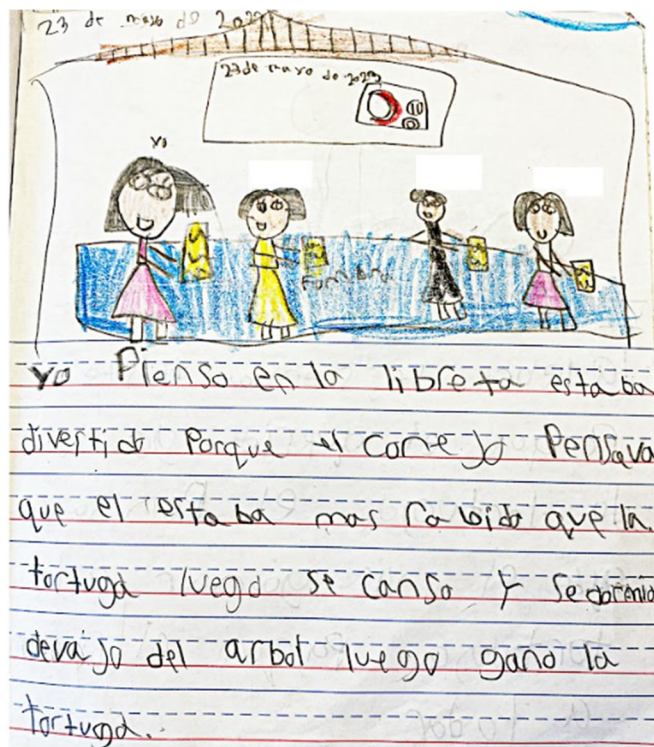 23 de mayo de 2023
23 de mayo de 2023
yo
yo Pienso en la libreta estaba
divertido Porque el conejo Pensava
que el estaba mas ravido que la
tortuga luego se canso y se dormio
devajo del arbol luego gano la
tortuga.